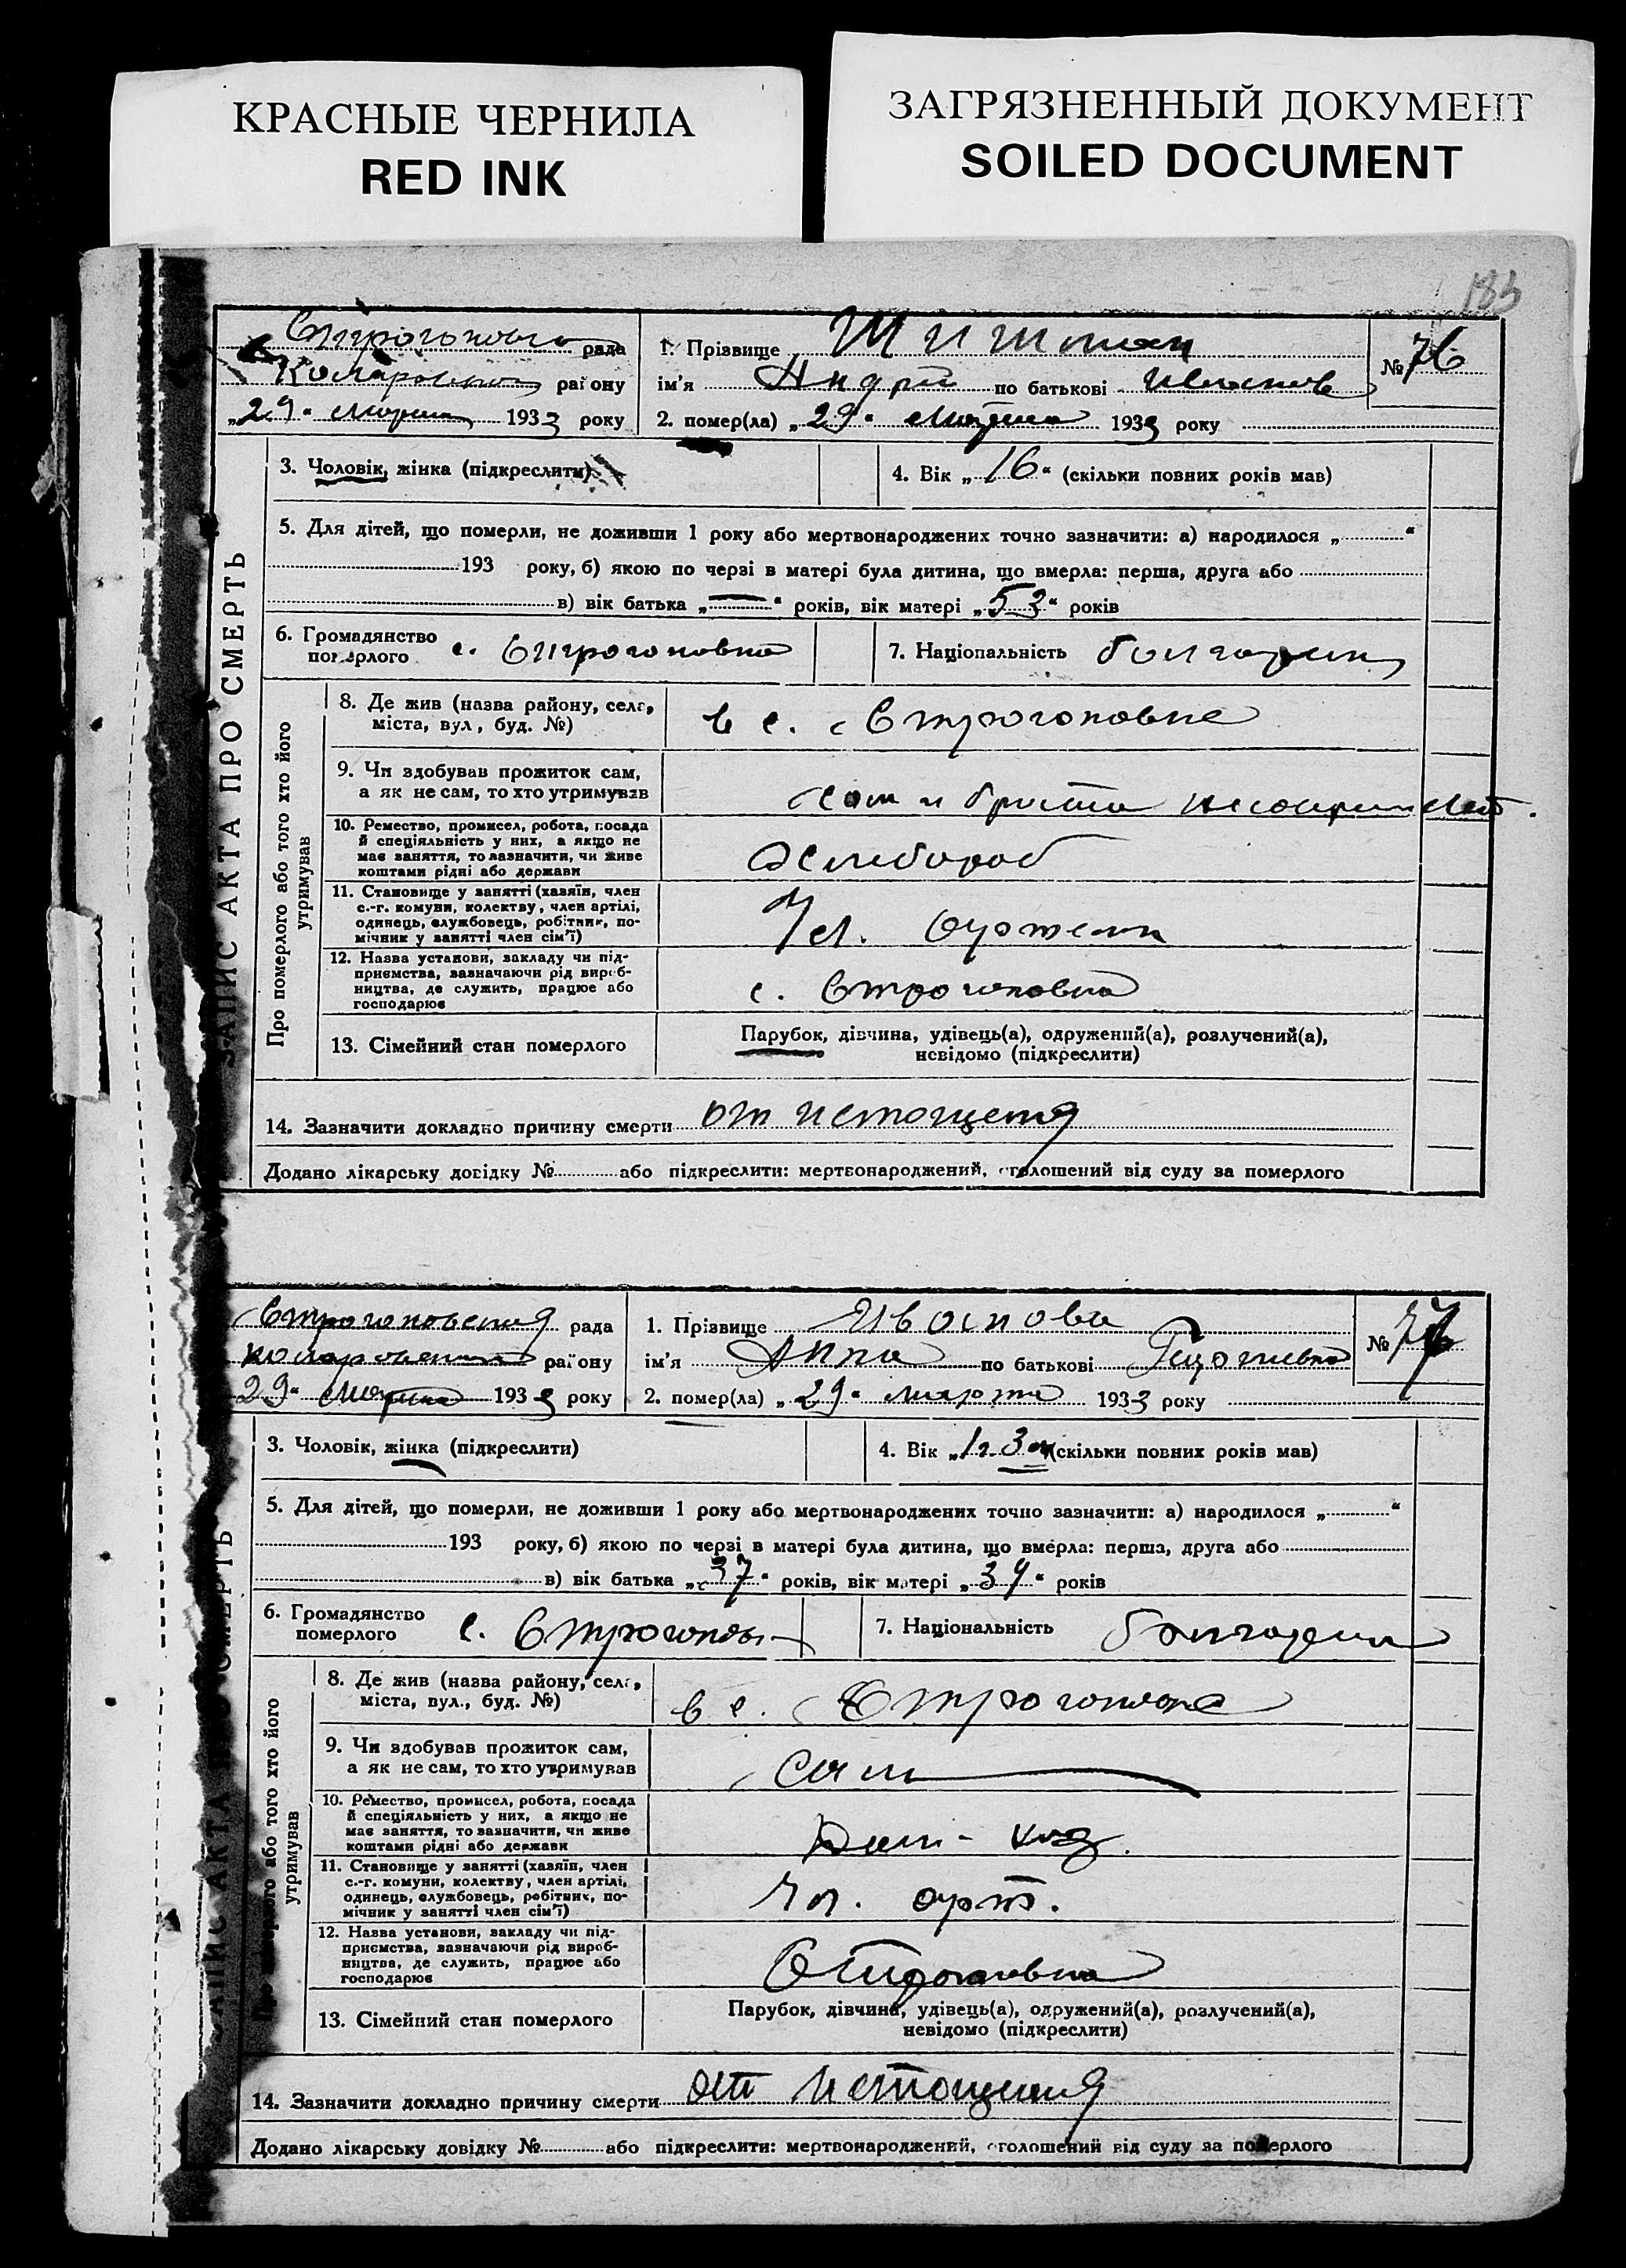 КРАСНЫЕ ЧЕРНИЛА
RED INK
ЗАГРЯЗНЕННЫЙ ДОКУМЕНТ
SOILED DOCUMENT
183
ЗАПИС АКТА ПРО СМЕРТЬ
рада
1. Прізвище Шишман
№ 76
району
ім'я Андрей по батькові Иванов
„29“ марта 1933 року
2. помер(ла) „29“ марта 1933 року
3. Чоловік, жінка (підкреслити)
4. Вік „16“ (скільки повних років мав)
5. Для дітей, що померли, не доживши 1 року або мертвонароджених точно зазначити: а) народилося „ “
193 року, б) якою по черзі в матері була дитина, що вмерла: перша, друга або
в) вік батька „—“ років, вік матері „53“ років
6. Громадянство померлого с. Строгоновка
7. Національність болгарин
Про померлого або того хто його утримував
8. Де жив (назва району, села, міста, вул, буд. №)
в с. Строгоновке
9. Чи здобував прожиток сам, а як не сам, то хто утримував
сам и брата
10. Ремество, промисел, робота, посада й спеціяльність у них, а якщо не має заняття, то зазначити, чи живе коштами рідні або держави
Хлебороб
11. Становище у занятті (хазяїн, член с.-г. комуни, колективу, член артілі, одинець, службовець, робітник, помічник у занятті член сім'ї)
Чл.
12. Назва установи, закладу чи підприємства, зазначаючи рід виробництва, де служить, працює або господарює
с. Строгоновка
13. Сімейний стан померлого
Парубок, дівчина, удівець(а), одружений(а), розлучений(а),
невідомо (підкреслити)
14. Зазначити докладно причину смерти от истощения
Додано лікарську довідку № або підкреслити: мертвонароджений, оголошений від суду за померлого
ЗАПИС АКТА ПРО СМЕРТЬ
Строгоновская рада
1. Прізвище Иванова
№ 77
району
ім'я Анна по батькові
29“ марта 1933 року
2. помер(ла) „29“ марта 1933 року
3. Чоловік, жінка (підкреслити)
4. Вік „1 г. 3 м (скільки повних років мав)
5. Для дітей, що померли, не доживши 1 року або мертвонароджених точно зазначити: а) народилося „ “
193 року, б) якою по черзі в матері була дитина, що вмерла: перша, друга або
в) вік батька „37“ років, вік матері „34“ років
6. Громадянство померлого с.
7. Національність болгарка
Про померлого або того хто його утримував
8. Де жив (назва району, села, міста, вул., буд. №)
в с. Строгоновке
9. Чи здобував прожиток сам, а як не сам, то хто утримував
сам
10. Ремество, промисел, робота, посада й спеціяльність у них, а якщо не має заняття, то зазначити, чи живе коштами рідні або держави
11. Становище у занятті (хазяїн, член с.-г. комуни, колективу, член артілі, одинець, службовець, робітник, помічник у занятті член сім'ї)
Чл. арт.
12. Назва установи, закладу чи підприємства, зазначаючи рід виробництва, де служить, працює або господарює
Строгоновка
13. Сімейний стан померлого
Парубок, дівчина, удівець(а), одружений(а), розлучений(а),
невідомо (підкреслити)
14. Зазначити докладно причину смерти от истощения
Додано лікарську довідку № або підкреслити: мертвонароджений, оголошений від суду за померлого